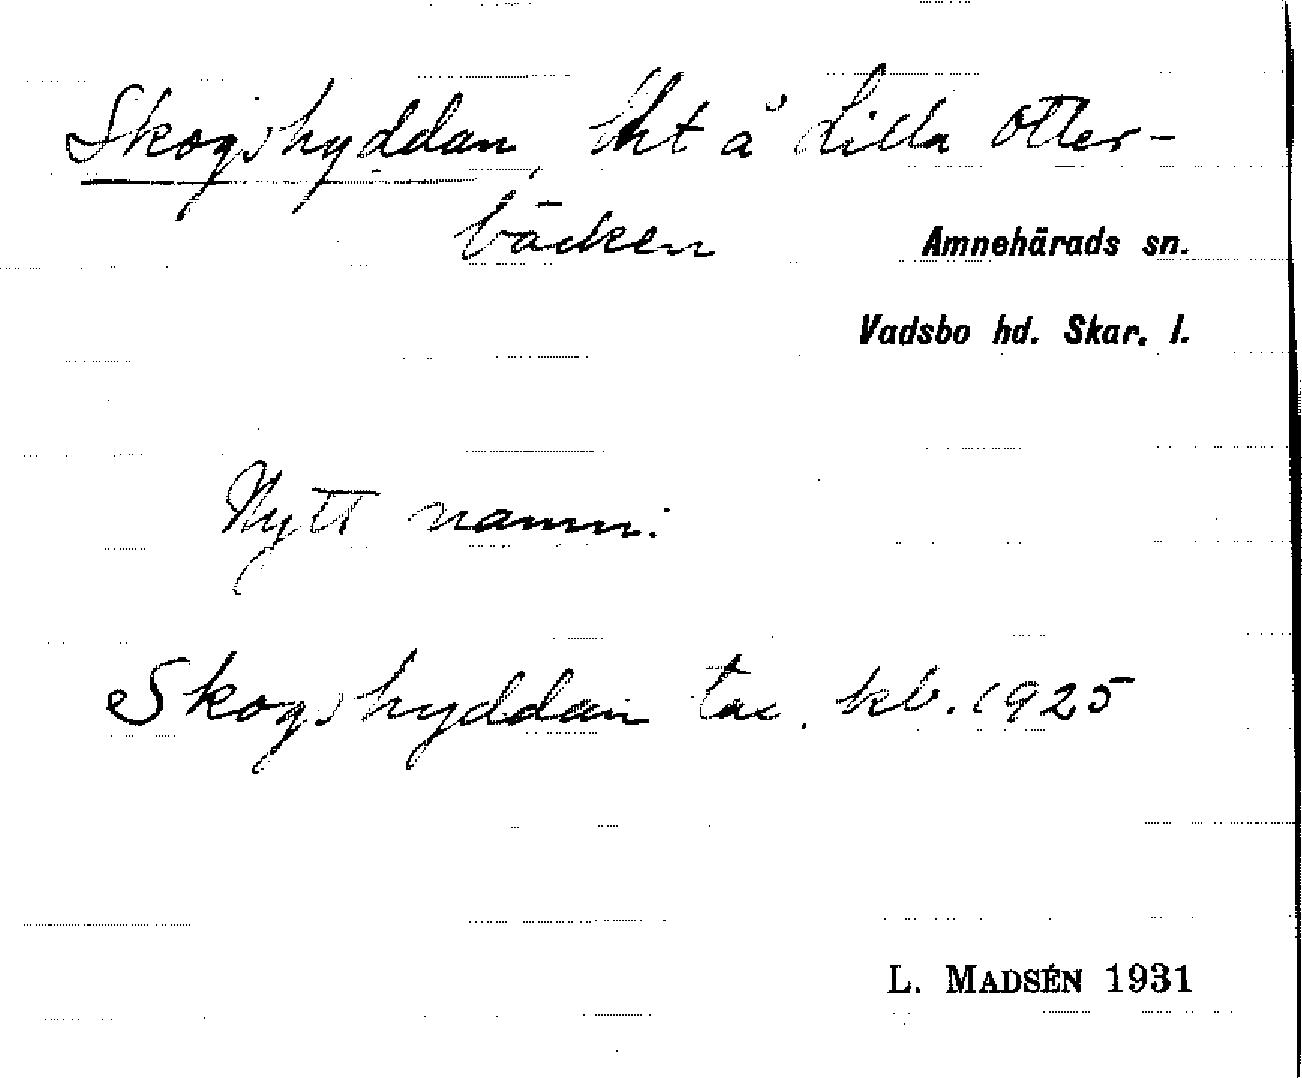 Skogshyddan, lht å Lilla Otter-
bäcken
Amnehärads sn.
Vadsbo hd. Skar. l.
Nytt namn.
Skogshyddan kb. 1925
L. MADSÉN 1931